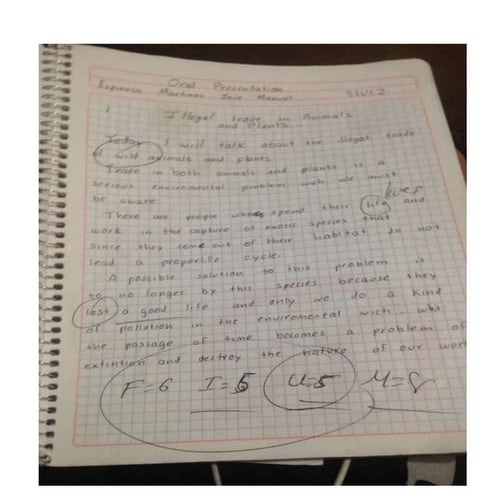 Oral Presentation
Espinosa Martinez Jose Manuel 5IV12
1
Illegal trade in Animals
and Plants.
Today I will talk about the illegal trade
of wild animals and plants
Trade in both animals and plants is a
serious enviromental problem we must
be aware
There are people who spend their life and
lives
work in the capture of exotic species that
since they come out of their habitat do not
lead a properlife cycle.
A possible solution to this problem is
to no longer by this species because they
lost a good life and only we do a kind
of pollution in the enviromental wich
the passage of time becomes a problem of
extintion and destroy the nature of our
F=6 I=5 U=5 M=8